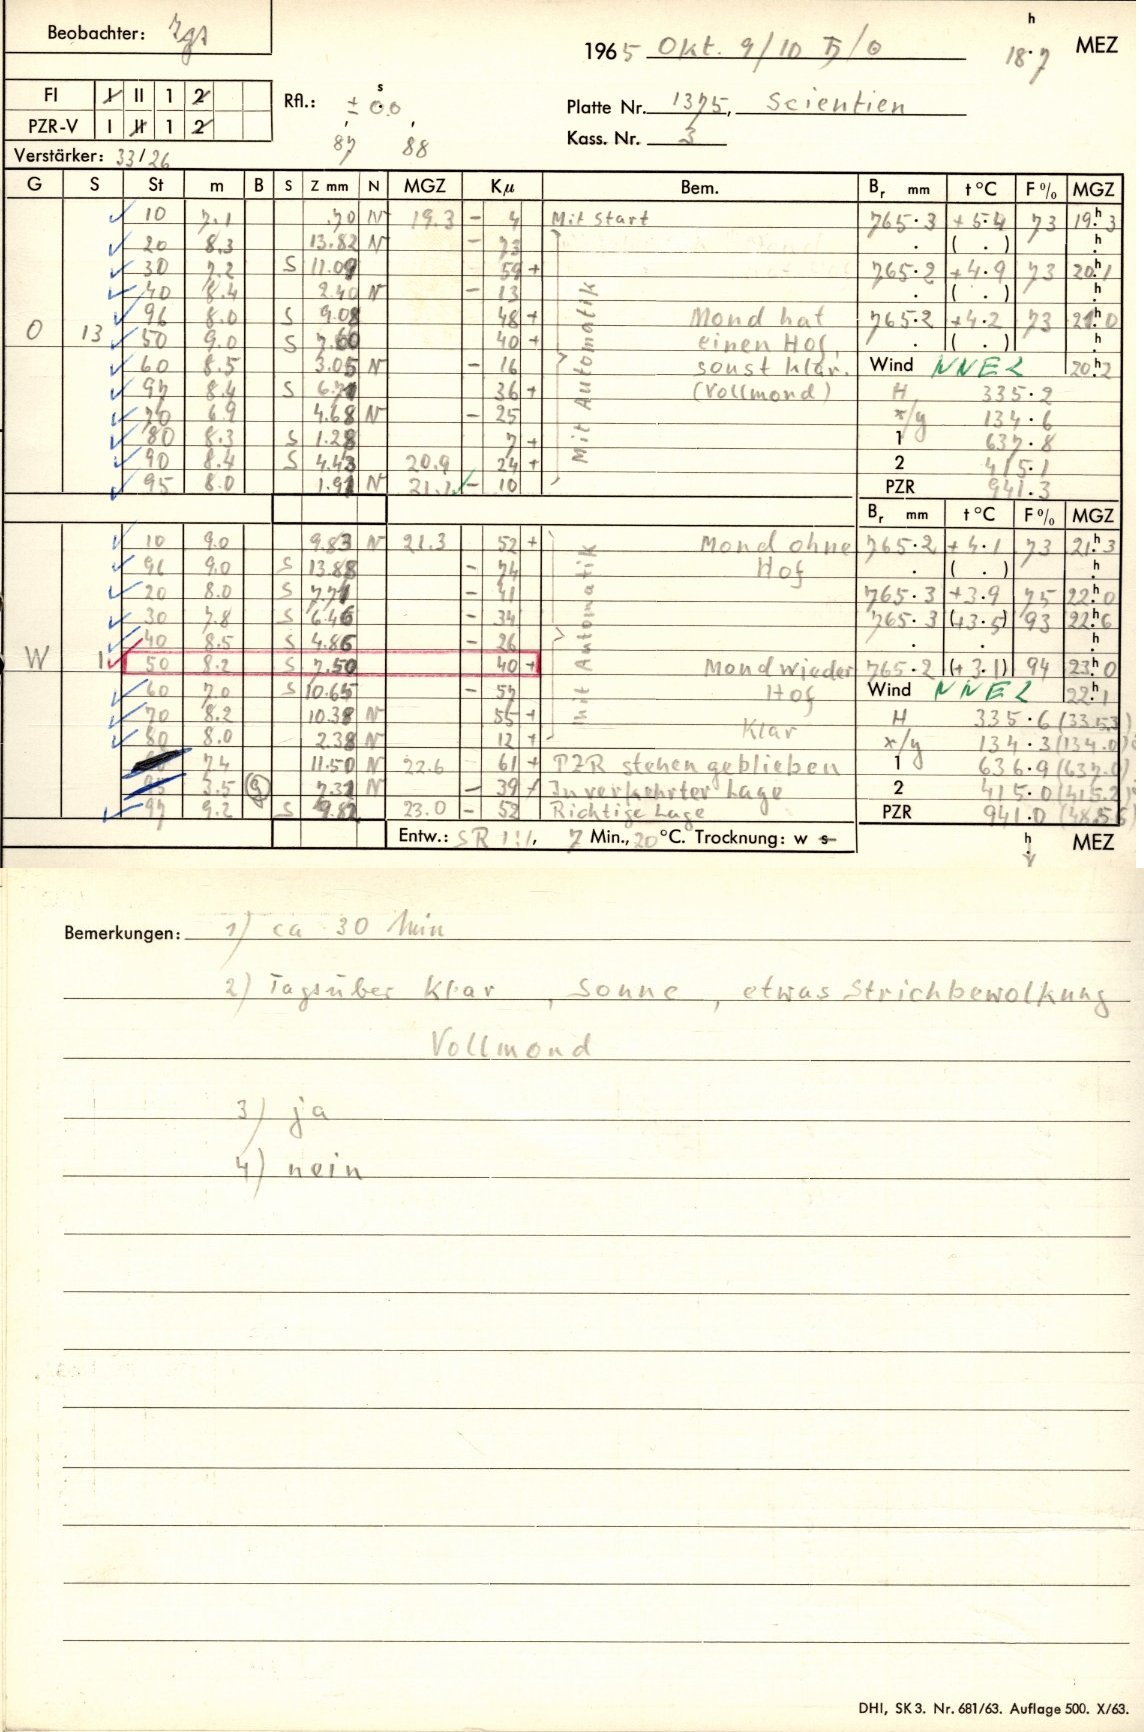 Beobachter: Zgs
1965 Okt. 9/10 ♄/☉ 18.7 h MEZ
FI I II 1 2
PZR-V I II 1 2
Rfl.: ± 0.0 s
87 88
Platte Nr. 1375, Scientien
Kass. Nr. 3
Verstärker: 33/26
G S St m B S Z mm N MGZ Kμ Bem. Br mm t °C F % MGZ
10 7.1 .70 N 19.3 - 4 Mit Start 765.3 +5.4 73 19.h3
20 8.3 13.82 N - 73 . ( . ) h
30 7.2 S 11.09 59 + 765.2 +4.9 73 20.h1
40 8.4 2.40 N - 13 . ( . ) h
96 8.0 S 9.08 48 + Mond hat 765.2 +4.2 73 21.h0
O 13 50 9.0 S 7.60 40 + einen Hof, . ( . ) h
60 8.5 3.05 N - 16 sonst klar. Wind NNE2 20.h2
97 8.4 S 6.71 36 + (Vollmond) H 335.2
70 6.9 4.68 N - 25 x/y 134.6
80 8.3 S 1.28 7 + 1 637.8
90 8.4 S 4.43 20.9 24 + 2 415.1
95 8.0 1.91 N 21.1 - 10 PZR 941.3
Mit Automatik
Br mm t °C F % MGZ
10 9.0 9.83 N 21.3 52 + Mond ohne 765.2 +4.1 73 21.h3
96 9.0 S 13.88 - 74 Hof . ( . ) h
20 8.0 S 7.71 - 41 765.3 +3.9 75 22.h0
30 7.8 S 6.46 - 34 765.3 (+3.5) 93 22.h6
40 8.5 S 4.86 - 26 . . h
W 1 50 8.2 S 7.50 40 + Mond wieder 765.2 (+3.1) 94 23.h0
60 7.0 S 10.65 - 57 Hof Wind NNE2 22.h1
70 8.2 10.38 N 55 + Klar H 335.6 (335.3)
80 8.0 2.38 N 12 + x/y 134.3 (134.0)
7.4 11.50 N 22.6 61 + PZR stehen geblieben 1 636.9 (637.0)
95 3.5 9 7.31 N - 39 In verkehrter Lage 2 415.0 (415.2)
97 9.2 S 9.82 23.0 - 52 Richtige Lage PZR 941.0
mit Automatik
Entw.: SR 1:1, 7 Min., 20 °C. Trocknung: w s
h MEZ
Bemerkungen: 1) ca 30 Min
2) Tagsüber Klar, Sonne, etwas Strichbewölkung
Vollmond
3) ja
4) nein
DHI, SK 3. Nr. 681/63. Auflage 500. X/63.